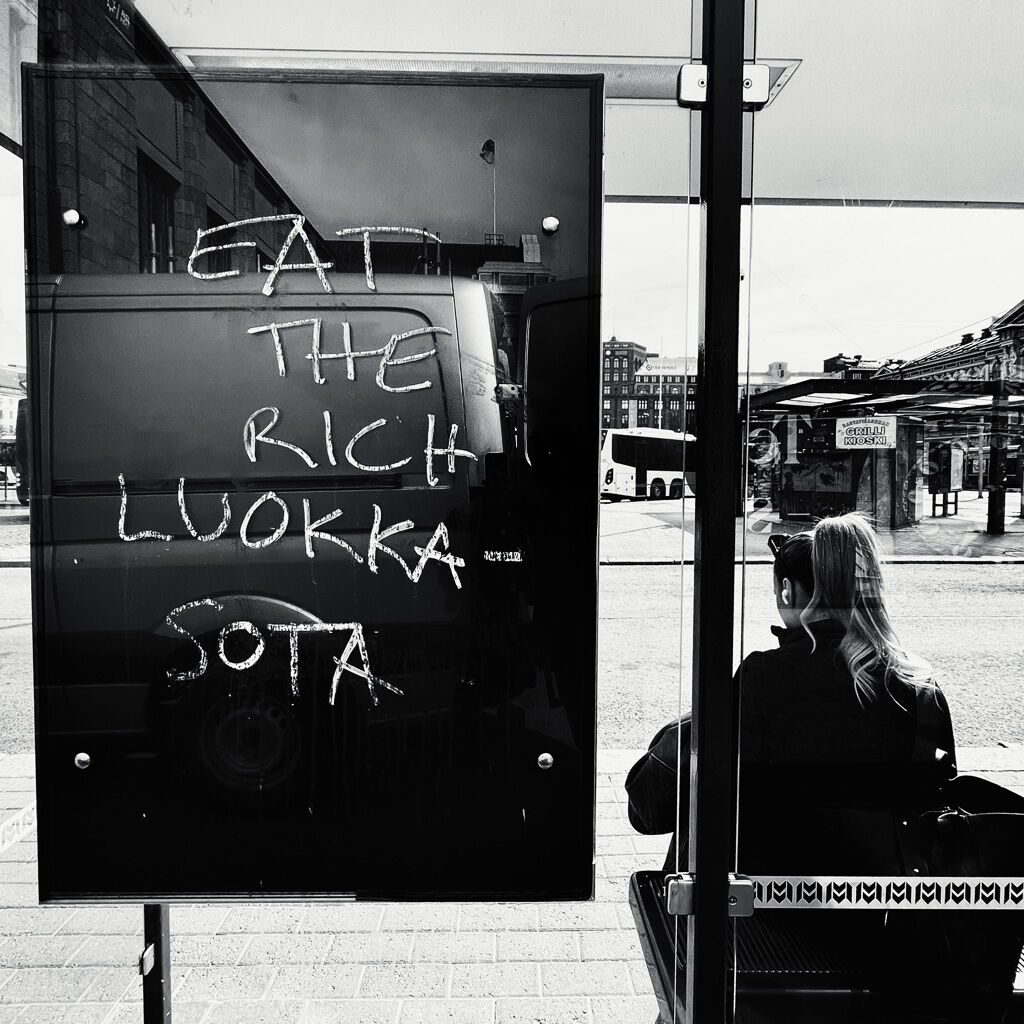 EAT
THE
RICH
LUOKKA
SOTA
GRILLI
KIOSKI